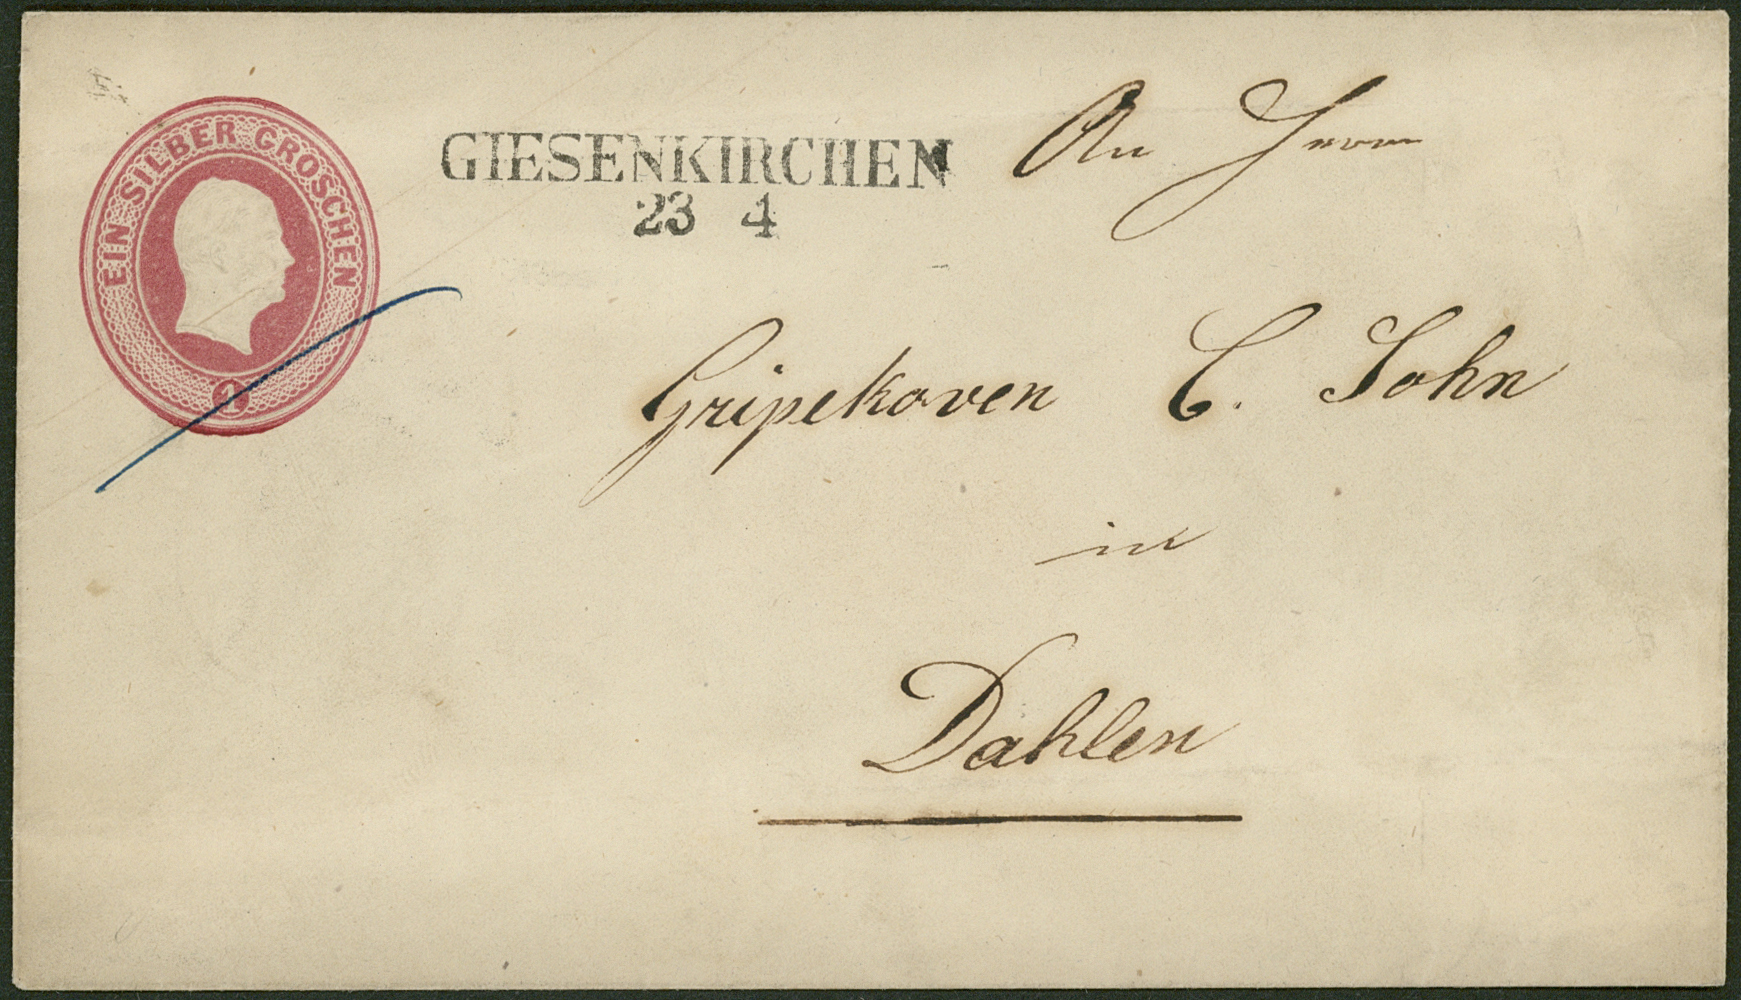 EIN SILBER GROSCHEN
1
GIESENKIRCHEN
23 4
An Herrn
Gripekoven C. Sohn
in
Dahlen